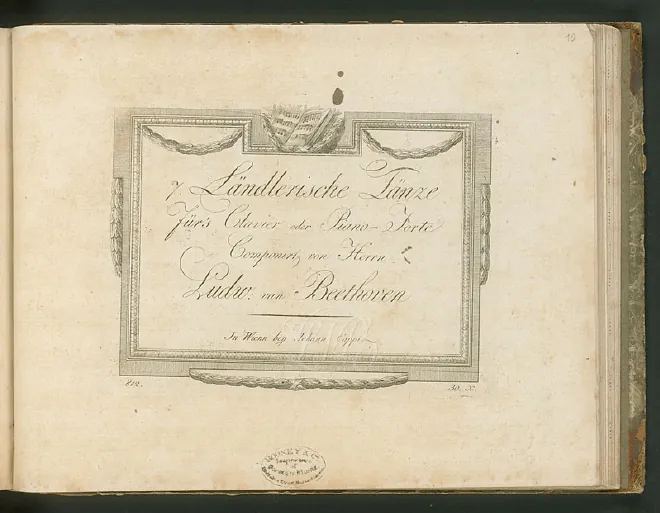 19
7 Ländlerische Tänze
für's Clavier oder Piano-Forte
Componirt von Herrn
Ludw. van Beethoven
In Wienn bey Johann Cappi
812.
30. X.